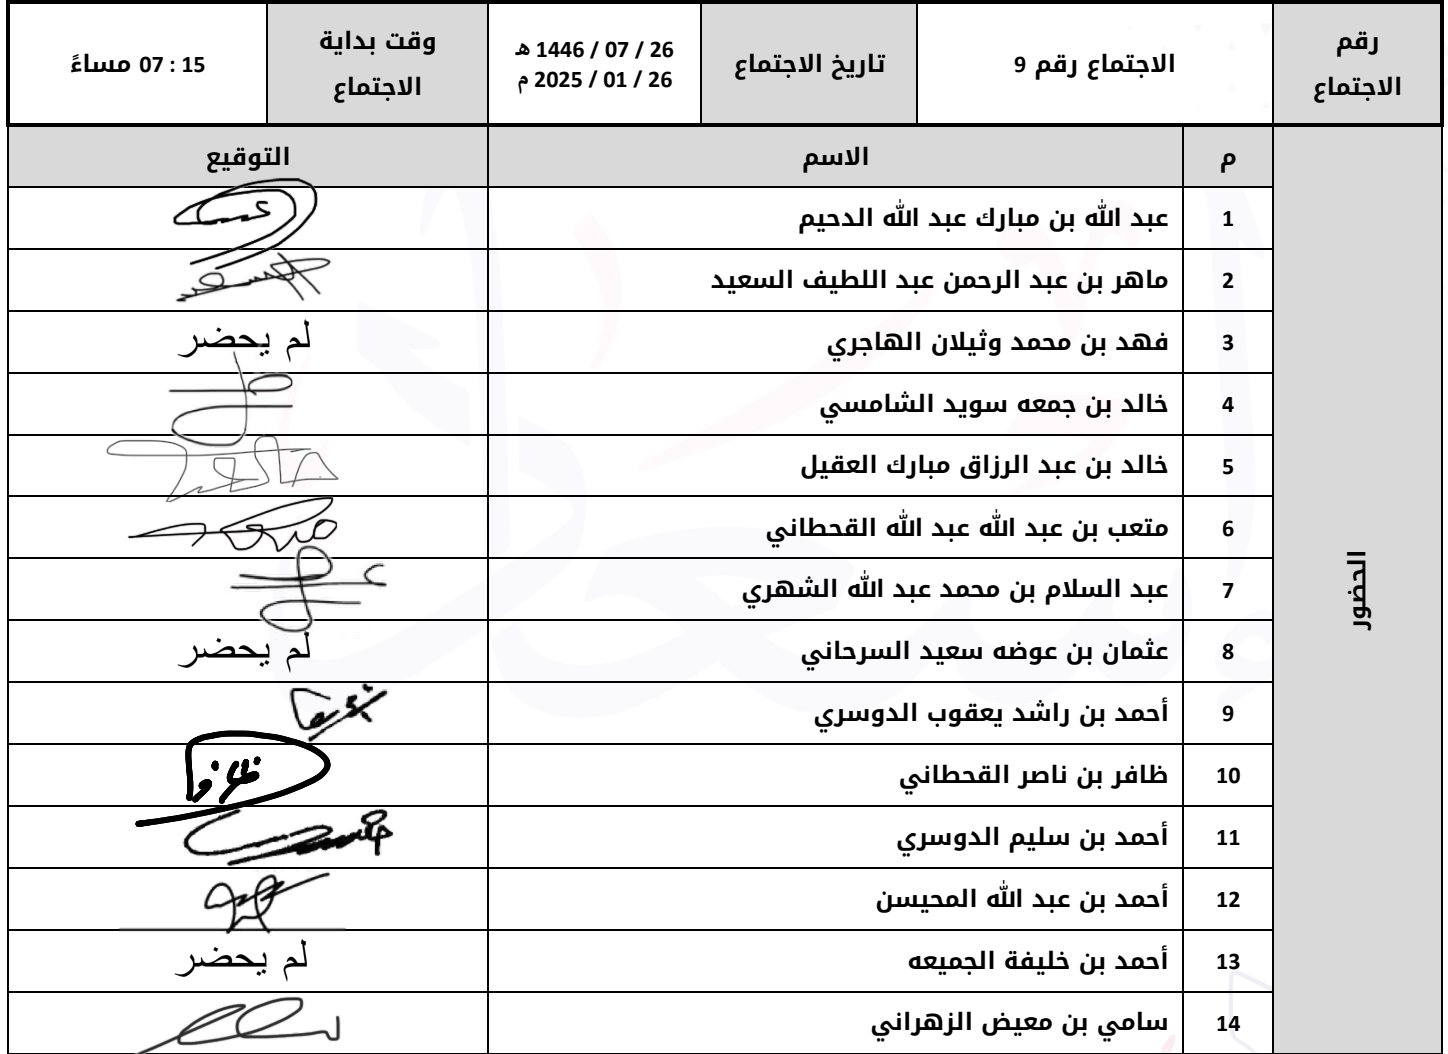 رقم الاجتماع
الاجتماع رقم 9
تاريخ الاجتماع
26 / 07 / 1446 هـ
26 / 01 / 2025 م
وقت بداية الاجتماع
15 : 07 مساءً
الحضور
م الاسم التوقيع
1 عبد الله بن مبارك عبد الله الدحيم
2 ماهر بن عبد الرحمن عبد اللطيف السعيد
3 فهد بن محمد وثيلان الهاجري لم يحضر
4 خالد بن جمعه سويد الشامسي
5 خالد بن عبد الرزاق مبارك العقيل
6 متعب بن عبد الله عبد الله القحطاني
7 عبد السلام بن محمد عبد الله الشهري
8 عثمان بن عوضه سعيد السرحاني لم يحضر
9 أحمد بن راشد يعقوب الدوسري
10 ظافر بن ناصر القحطاني
11 أحمد بن سليم الدوسري
12 أحمد بن عبد الله المحيسن
13 أحمد بن خليفة الجميعه لم يحضر
14 سامي بن معيض الزهراني